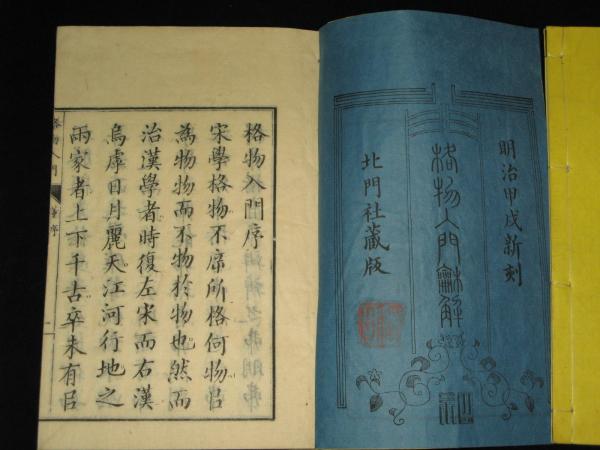 明治甲戌新刻
格物入門龢解
北門社藏版
格物入門序
宋學格物不床所格何物㠯
為物物而不物於物也然而
治漢學者時復左宋而右漢
烏虖日月麗天江河行地之
兩家者上下千古卒未有㠯
格物入門
序
一